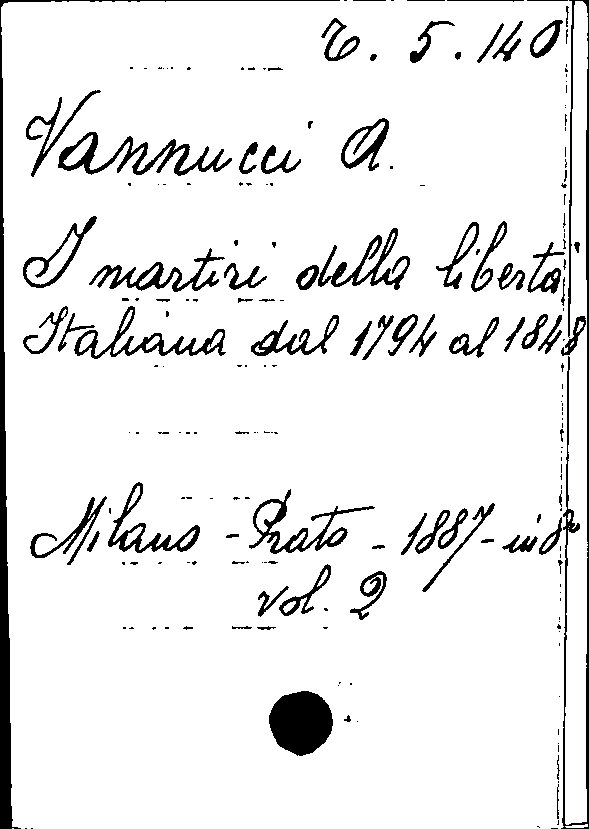 6. 5. 140
Vannucci A.
I martiri della libertà
Italiana dal 1794 al 1848
Milano - Prato - 1887 - in 8º
vol. 2